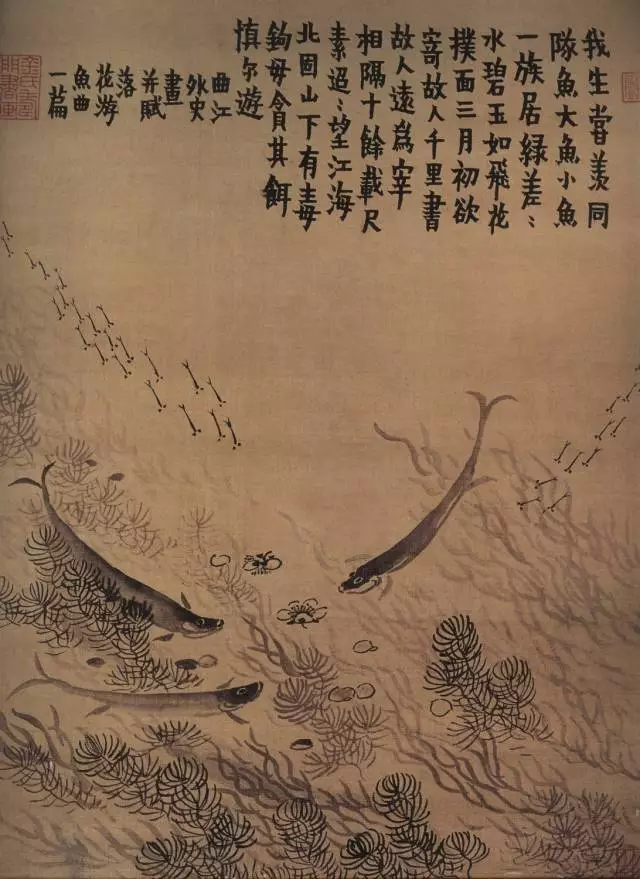 我生嘗羨同
隊魚大魚小魚
一族居綠差〻
水碧玉如飛花
撲面三月初欲
寄故人千里書
故人遠為宰
相隔十餘載尺
素迢〻望江海
北固山下有毒
鉤毋貪其餌
慎尔遊
曲江
外史
畫
并賦
落
花游
魚曲
一篇